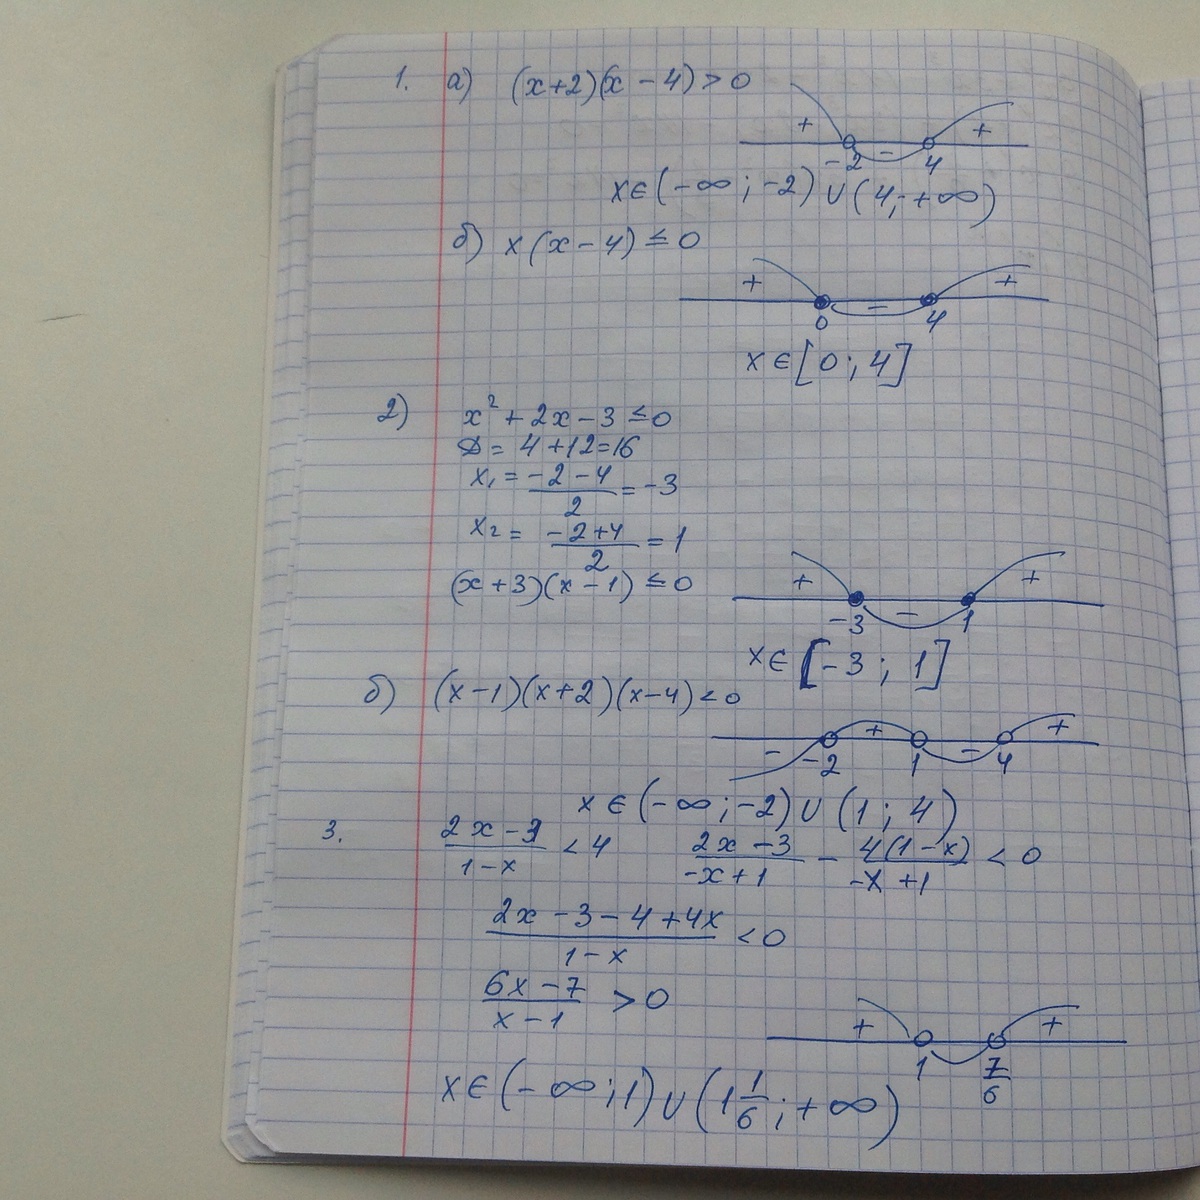 1. а) (x+2)(x-4)>0
+ - +
-2 4
x∈(-∞;-2)∪(4;+∞)
б) x(x-4)≤0
+ - +
0 4
x∈[0;4]
2) x²+2x-3≤0
D=4+12=16
x₁=(-2-4)/2=-3
x₂=(-2+4)/2=1
(x+3)(x-1)≤0
+ - +
-3 1
x∈[-3;1]
б) (x-1)(x+2)(x-4)<0
- + - +
-2 1 4
x∈(-∞;-2)∪(1;4)
3. (2x-3)/(1-x)<4 (2x-3)/(-x+1) - 4(1-x)/(-x+1)<0
(2x-3-4+4x)/(1-x)<0
(6x-7)/(x-1)>0
+ +
1 7/6
x∈(-∞;1)∪(1 1/6;+∞)